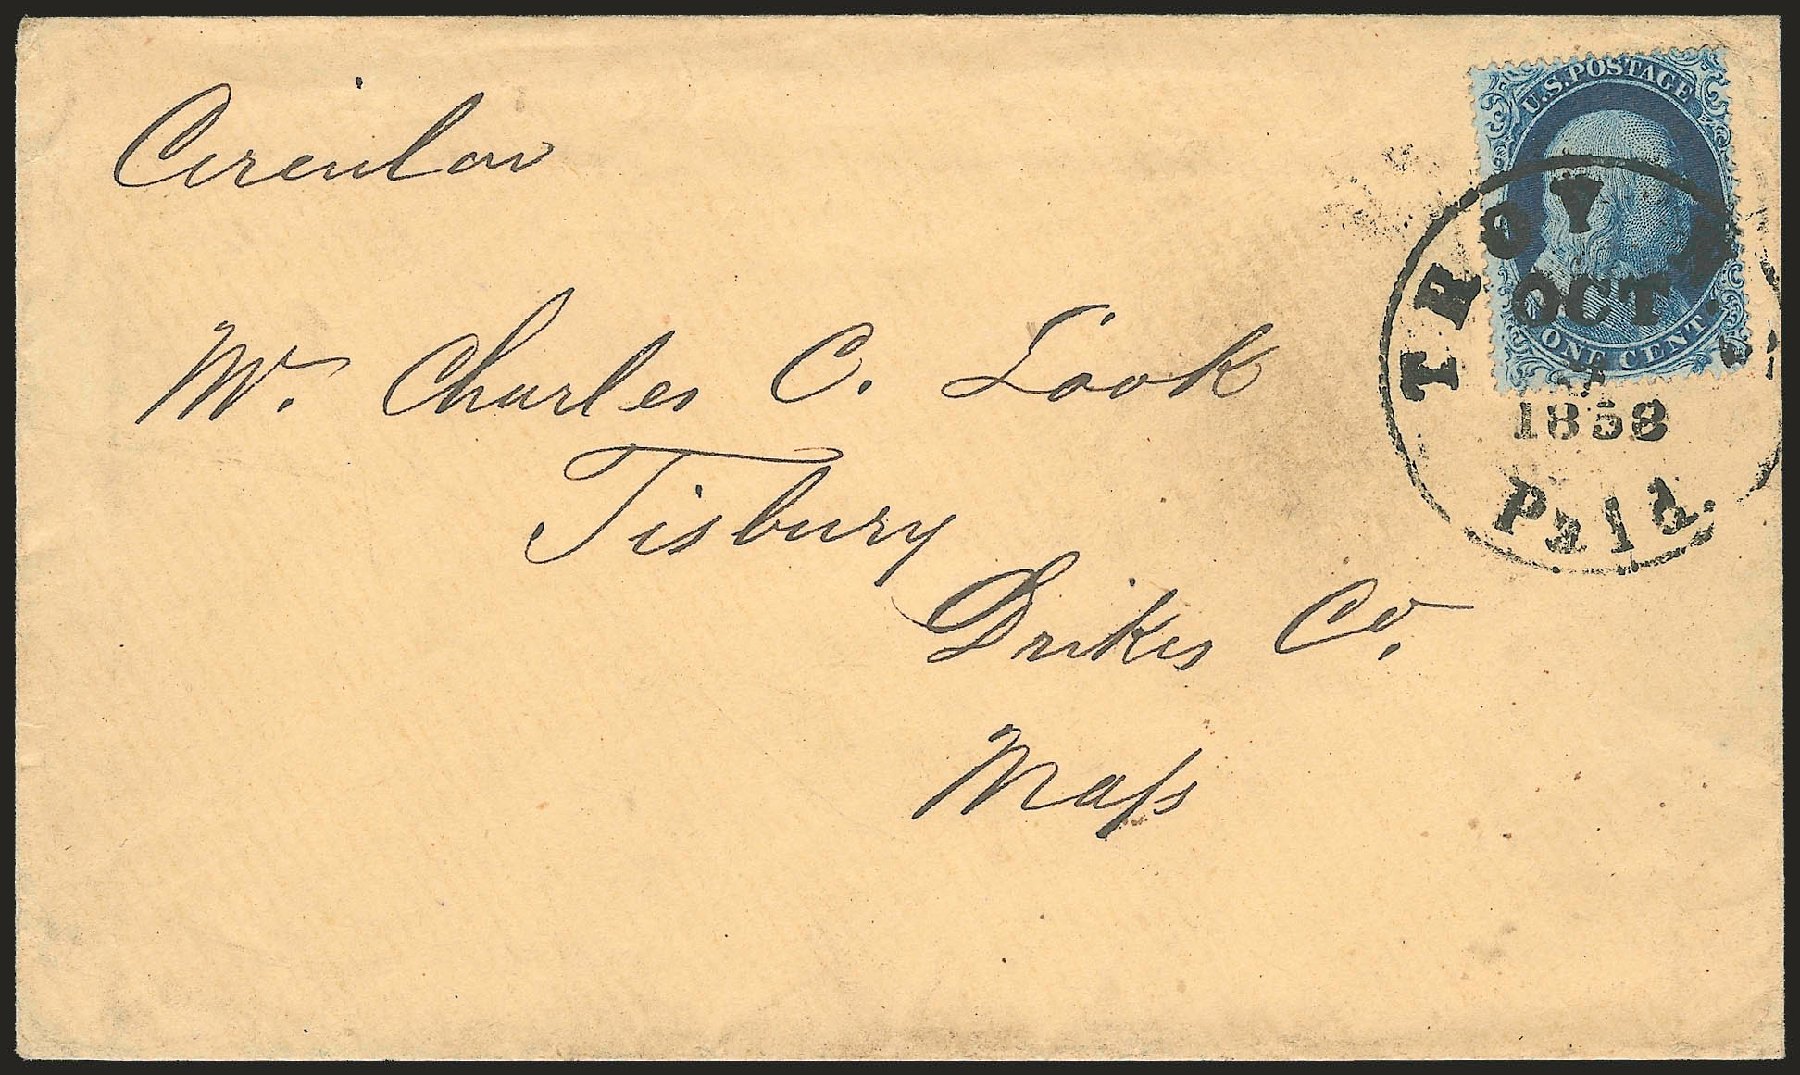 Circular
U.S. POSTAGE
TROY
OCT
ONE CENT
1858
Paid.
Mr. Charles C. Look
Tisbury
Dukes Co.
Mass